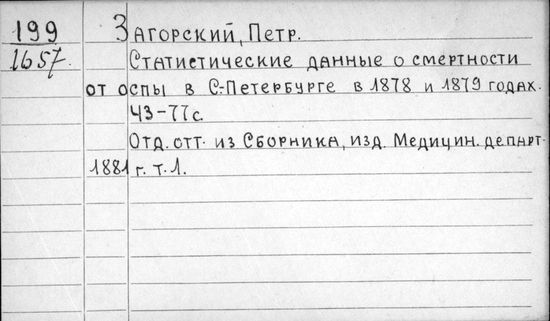 199 Загорский, Петр.
1657. Статистические данные о смертности
от оспы в С.-Петербурге в 1878 и 1879 годах.
43-77с.
Отд. отт. из Сборника, изд. Медицин. департ.
1881 г. т.1.